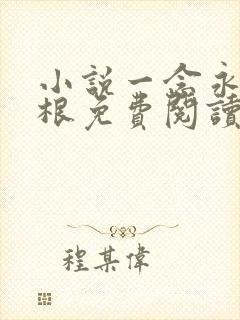 小說一念永
根免費閱讀
程某偉